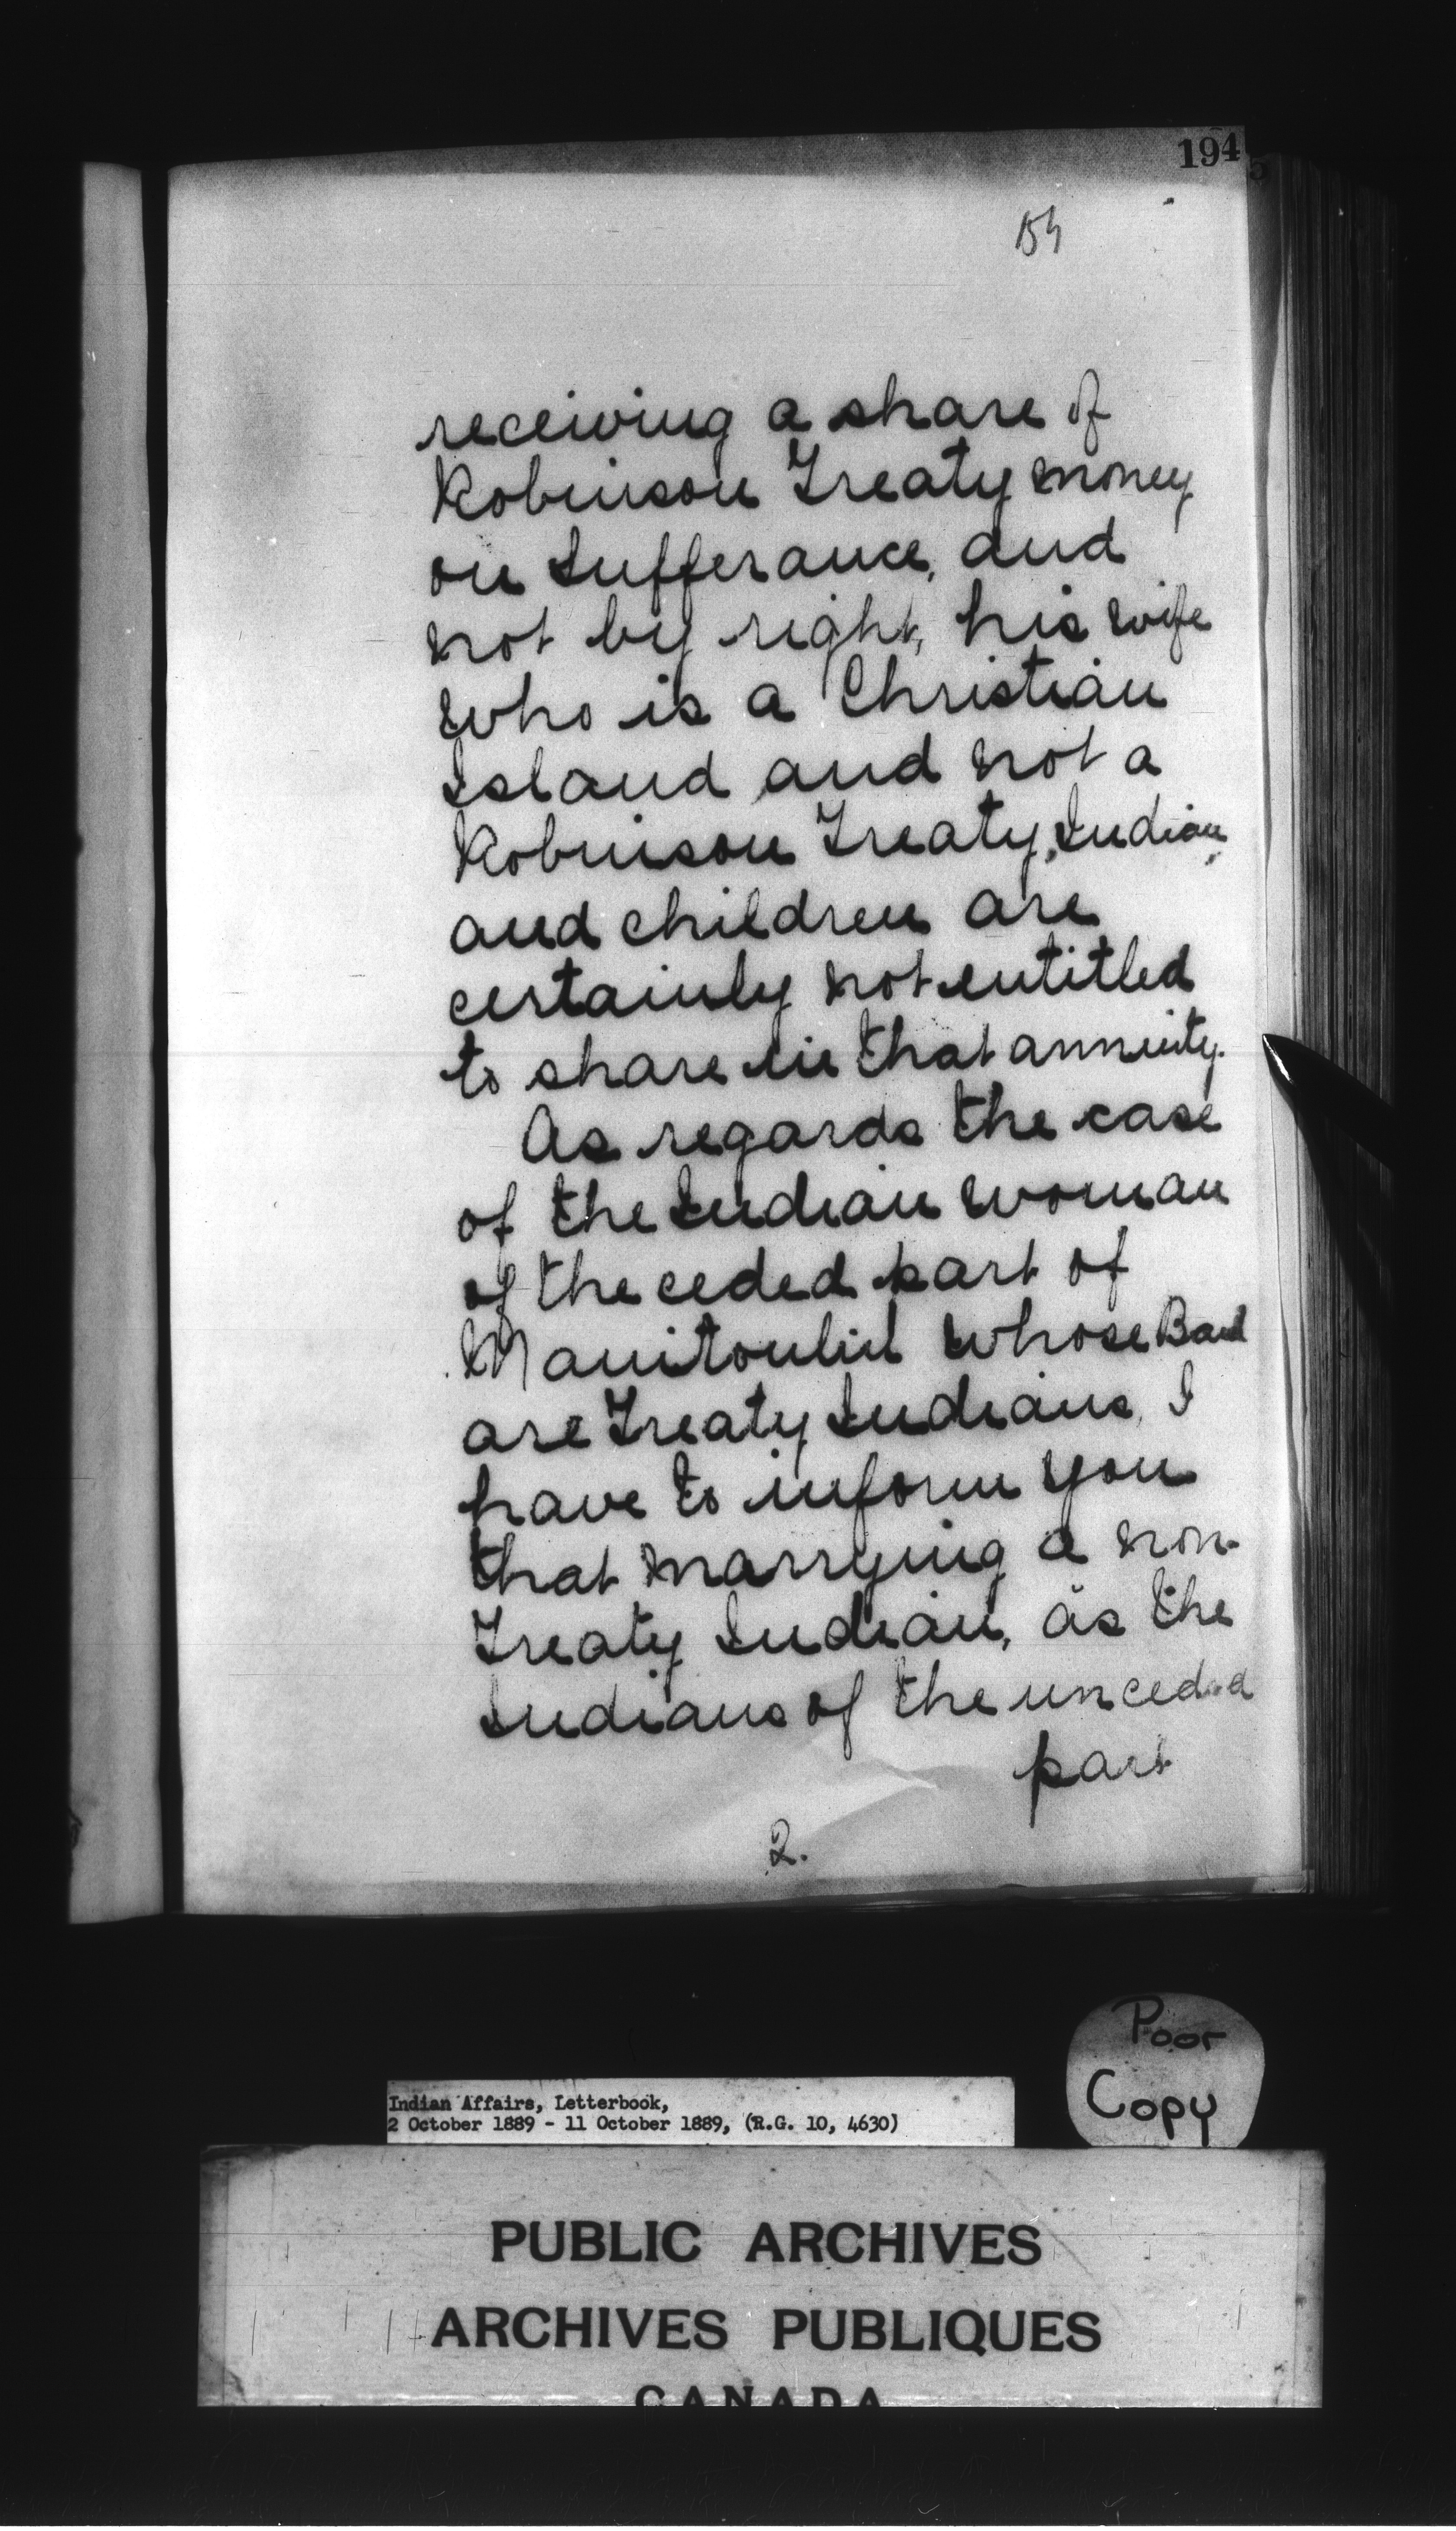 194
receiving a share of
Robinson Treaty money
on sufferance, and
not by right, his wife
who is a Christian
Island and not a
Robinson Treaty, Indian,
and children are
certainly not entitled
to share in that annuity.
As regards the case
of the Indian woman
of the ceded part of
Manitoulin whose Band
are Treaty Indians, I
have to inform you
that marrying a non-
Treaty Indian, as the
Indians of the unceded
part
2.
Poor
Copy
Indian Affairs, Letterbook,
2 October 1889 - 11 October 1889, (R.G. 10, 4630)
PUBLIC ARCHIVES
ARCHIVES PUBLIQUES
CANADA